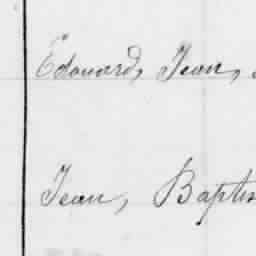 Edouard, Jean,
Jean, Baptis